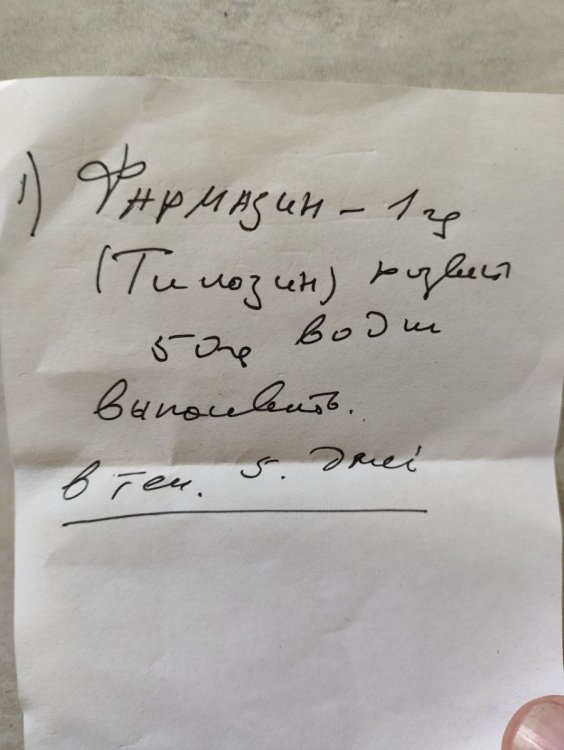 1) Фармазин – 1 гр
(Тилозин) развест
50гр воды
выпаивать.
в теч. 5. дней